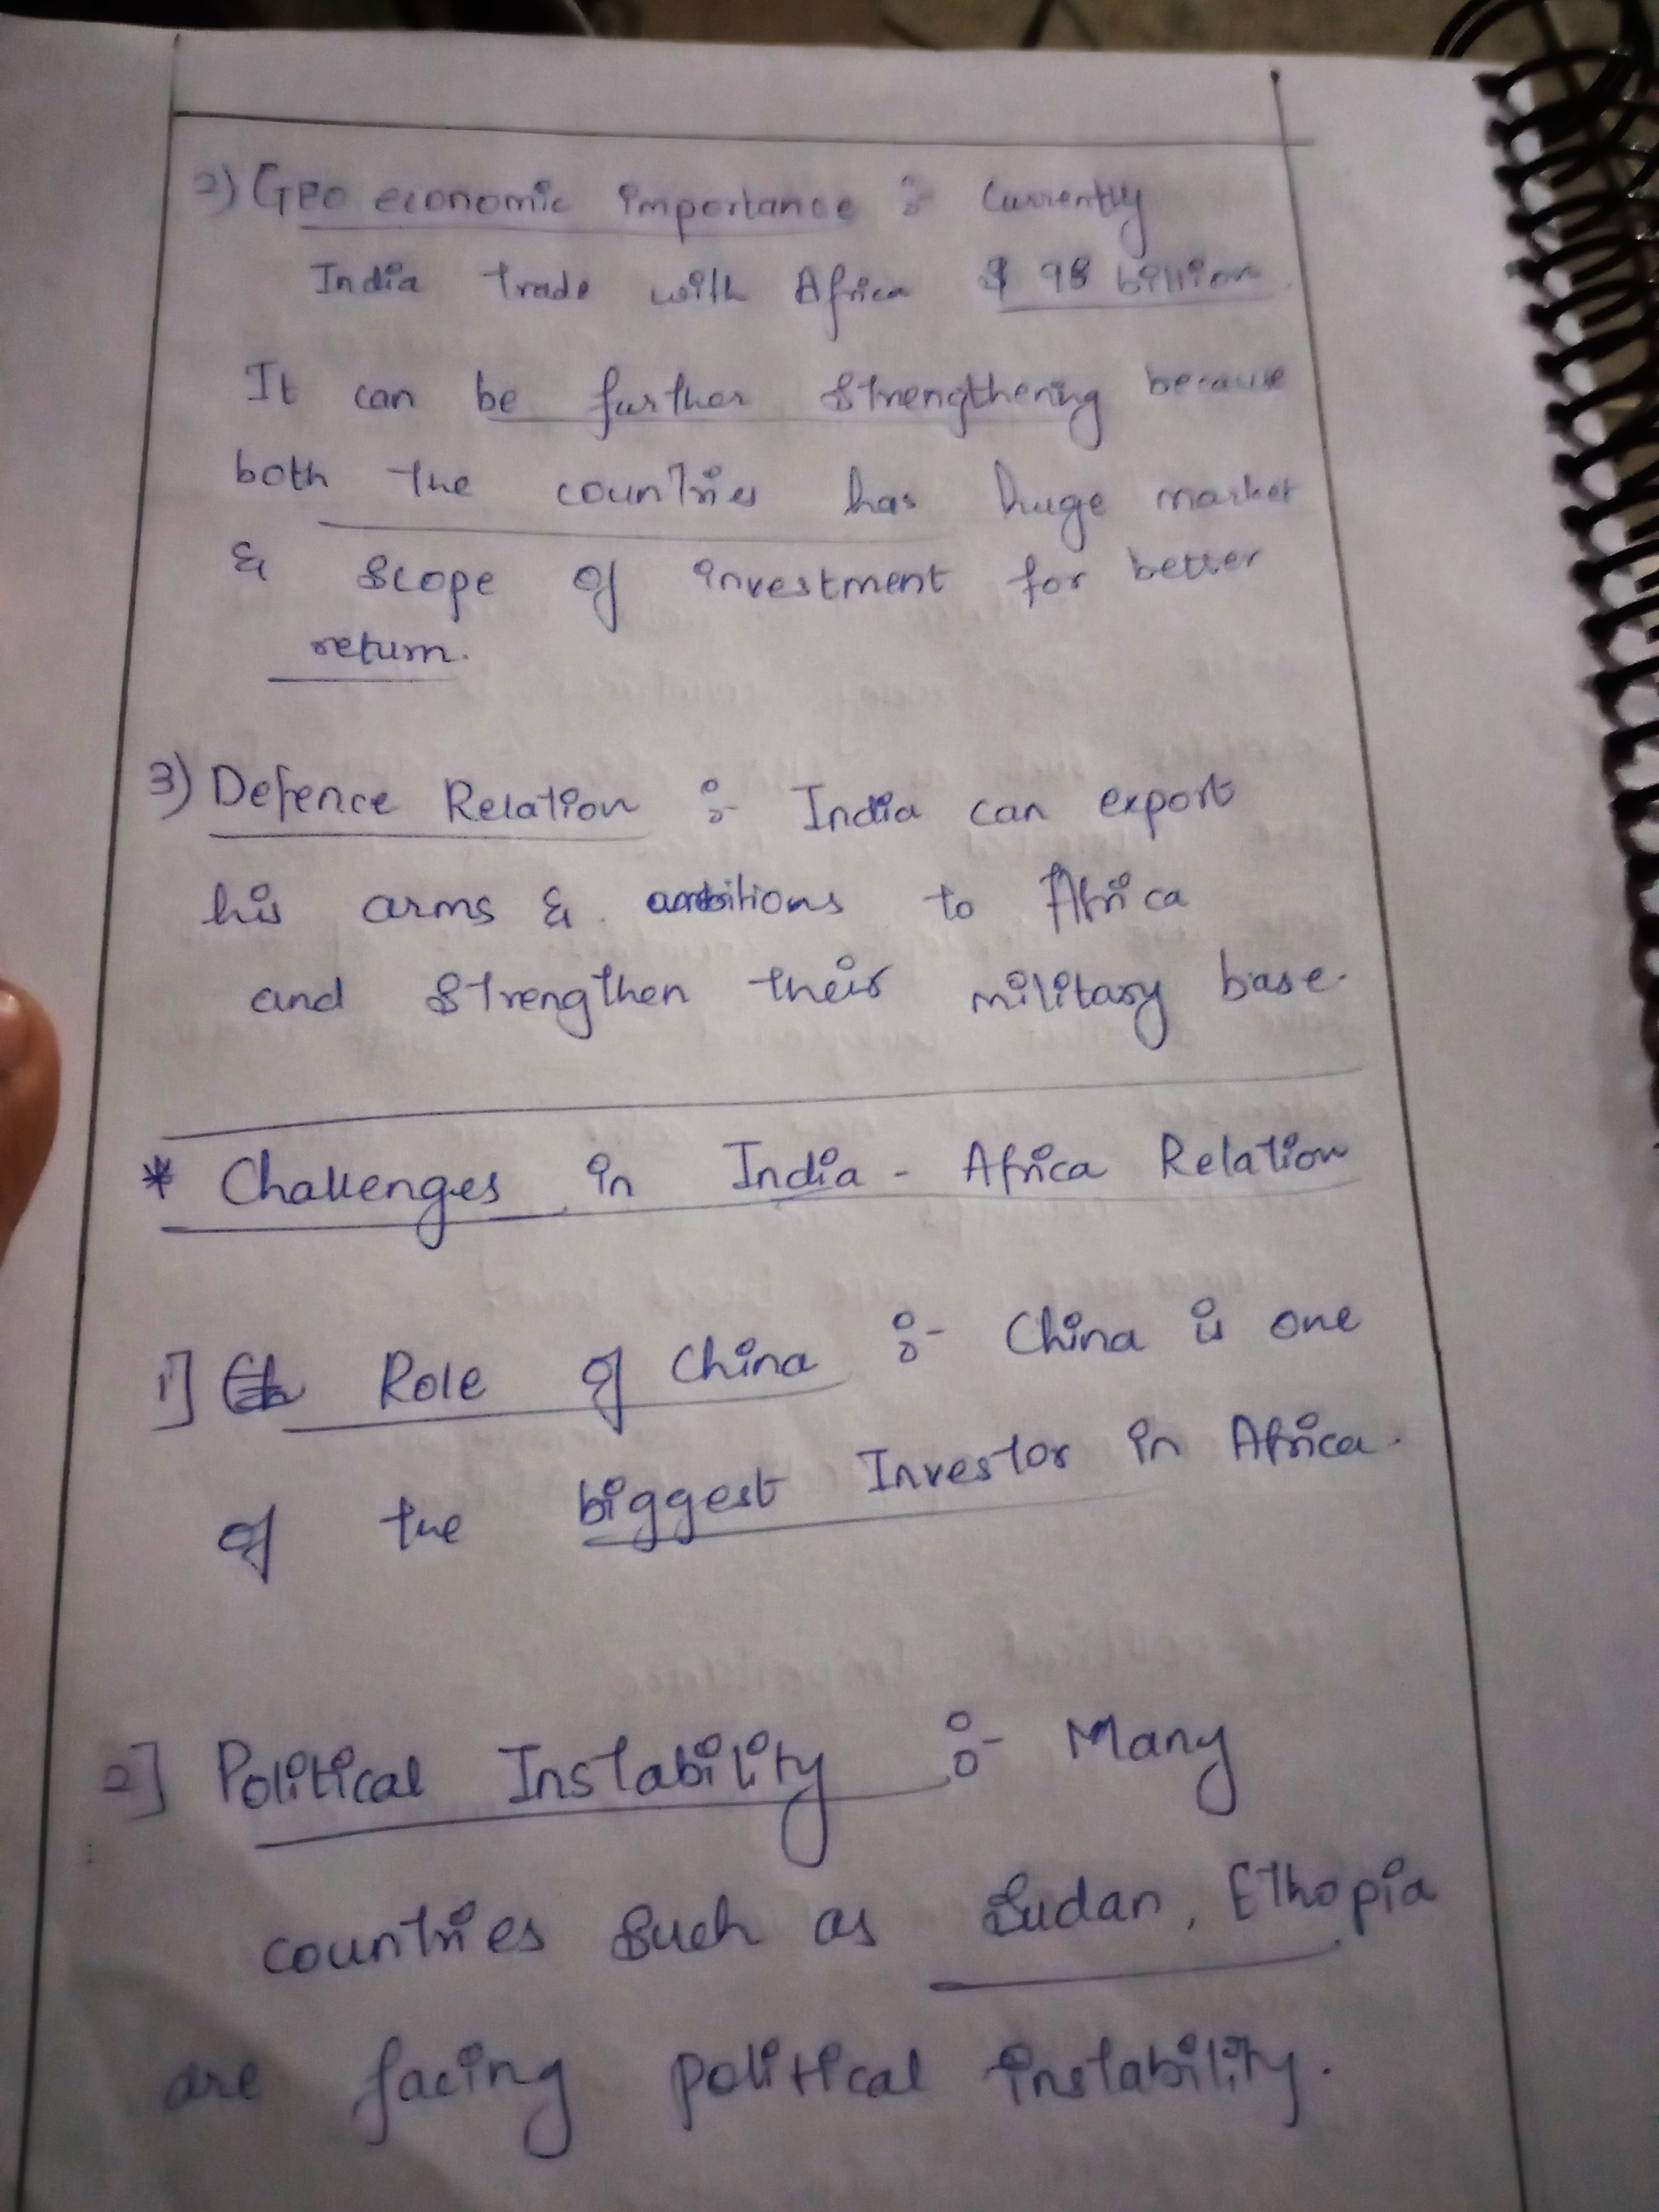 2) Geo economic importance :- Currently
India trade with Africa $ 98 billion.
It can be further strengthening because
both the countries has huge market
& scope of investment for better
return.
3) Defence Relation :- India can export
his arms & ambitions to Africa
and strengthen their military base.
* Challenges in India - Africa Relation
1] Role of China :- China is one
of the biggest Investor in Africa.
2] Political Instability :- Many
countries such as Sudan, Ethopia
are facing political instability.